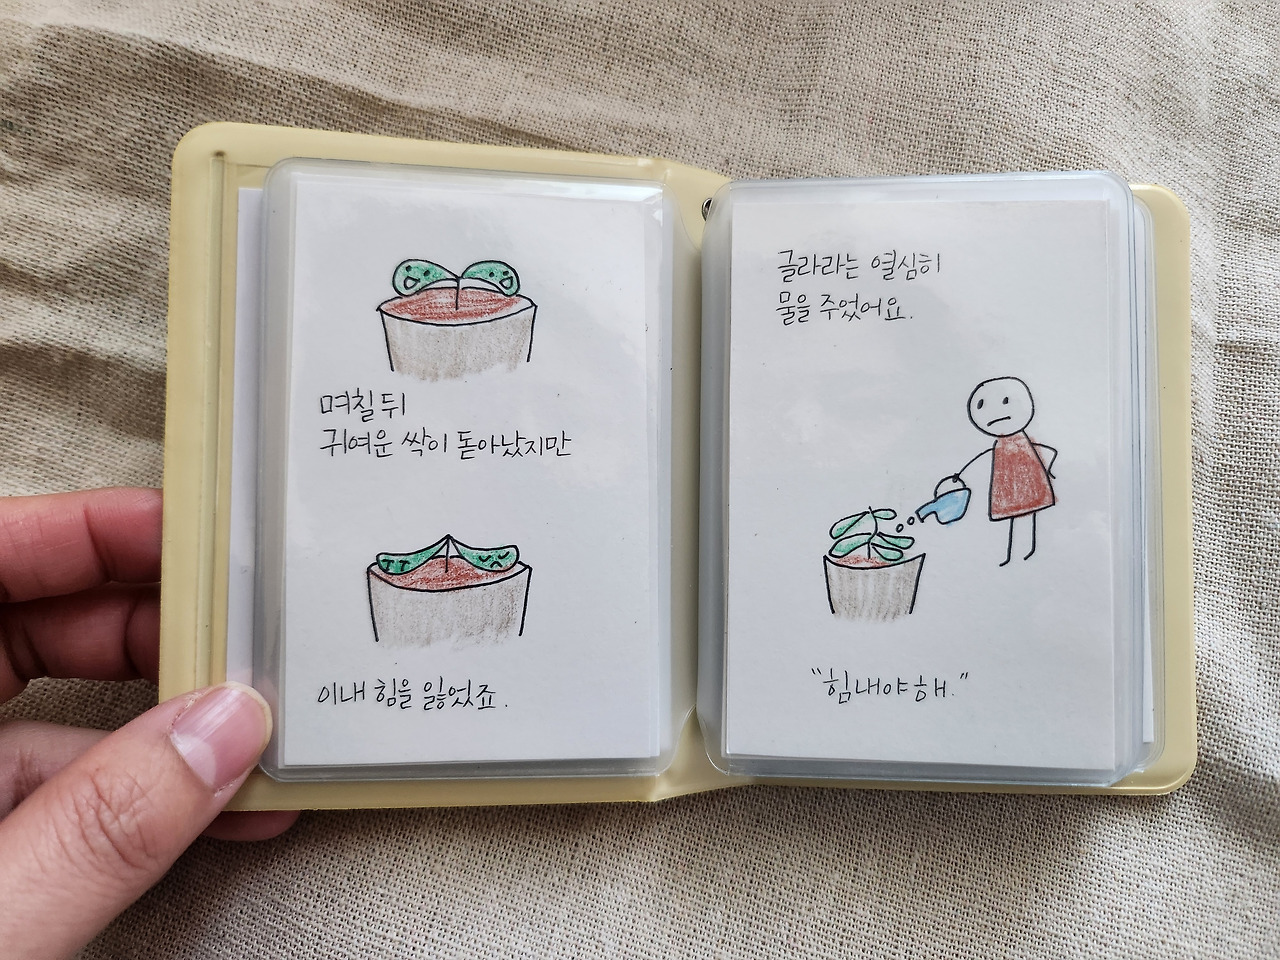 며칠 뒤
귀여운 싹이 돋아났지만
이내 힘을 잃었죠.
글라라는 열심히
물을 주었어요.
"힘내야 해."